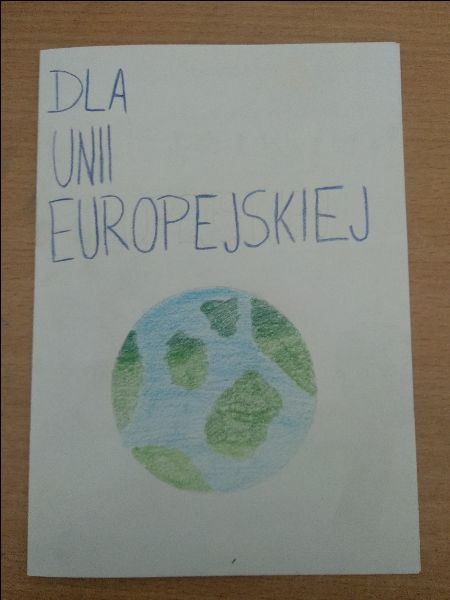 DLA
UNII
EUROPEJSKIEJ